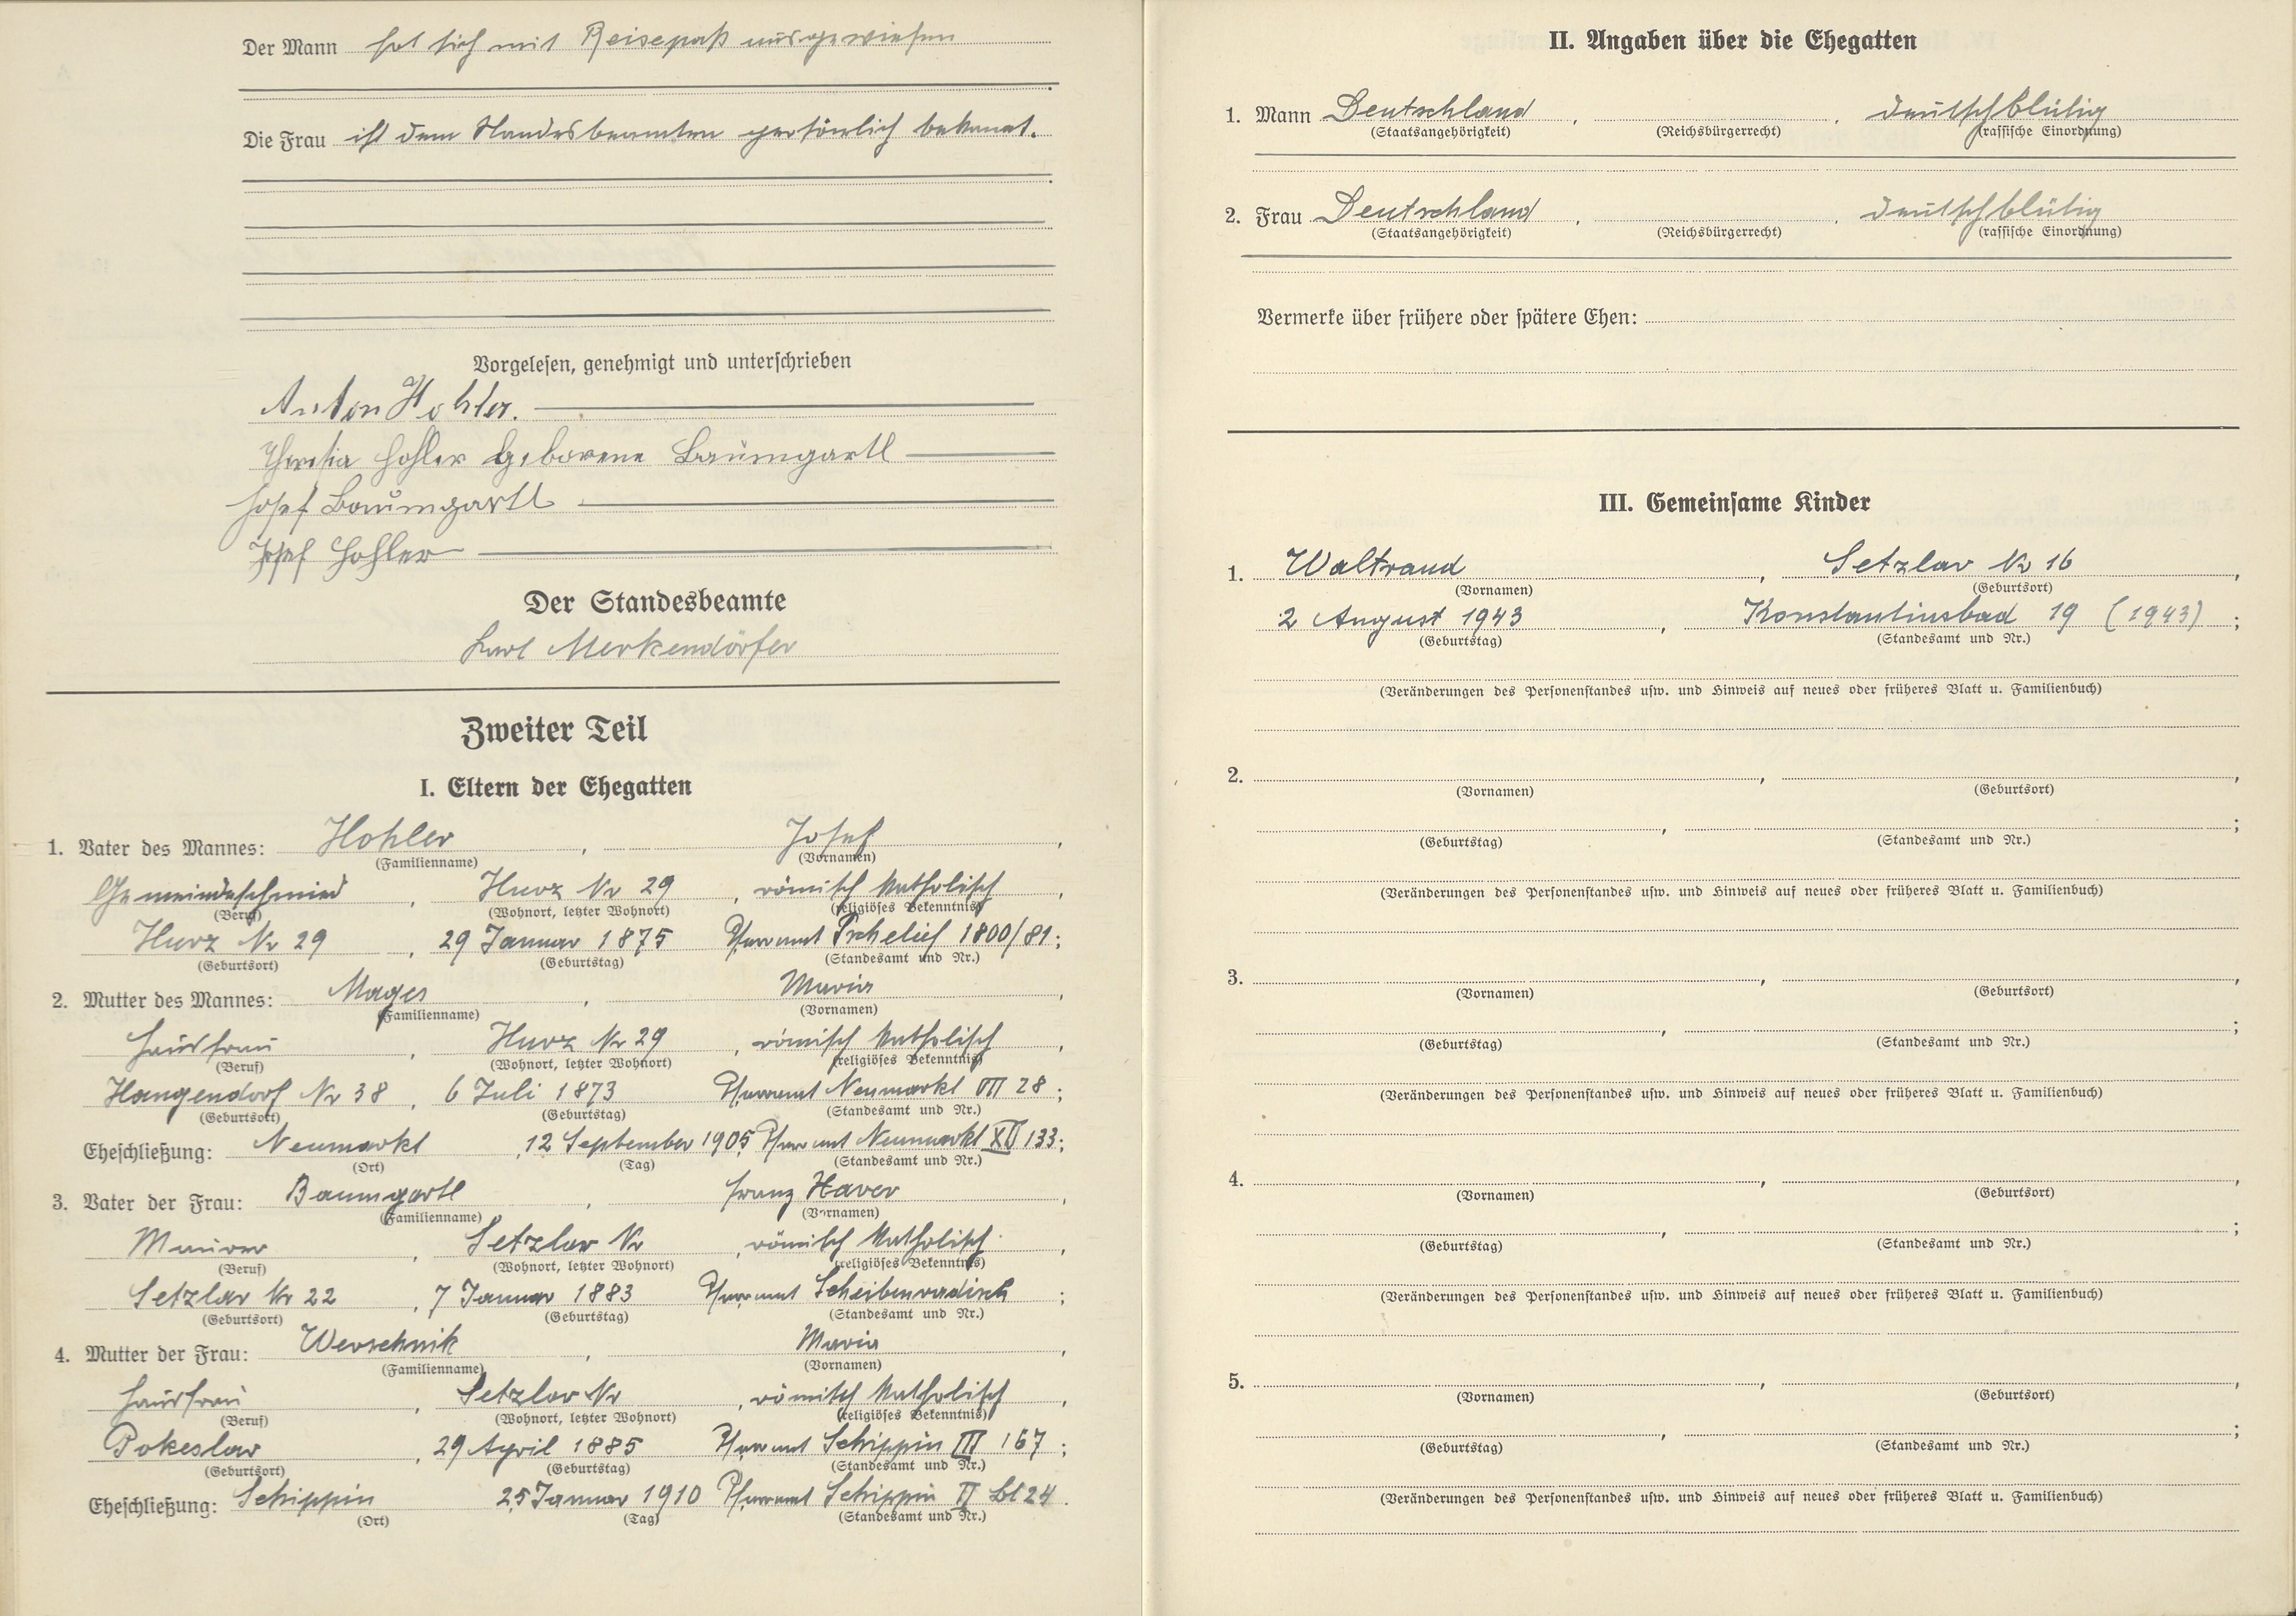 Der Mann hat sich mit Reisepaß ausgewiesen
Die Frau ist dem Standesbeamten persönlich bekannt.
Vorgelesen, genehmigt und unterschrieben
Anton Hohler.
Theresia Hohler geborene Baumgartl
Josef Baumgartl
Josef Hohler
Der Standesbeamte
Karl Merkendörfer
Zweiter Teil
I. Eltern der Ehegatten
1. Vater des Mannes: Hohler, Josef,
(Familienname) (Vornamen)
Gemeindeschmied, Hurz Nr 29, römisch katholisch,
(Beruf) (Wohnort, letzter Wohnort) (religiöses Bekenntnis)
Hurz Nr 29, 29 Januar 1875 Pfarramt Tschelief 1800/81;
(Geburtsort) (Geburtstag) (Standesamt und Nr.)
2. Mutter des Mannes: Mages, Maria,
(Familienname) (Vornamen)
Hausfrau, Hurz Nr 29, römisch katholisch,
(Beruf) (Wohnort, letzter Wohnort) (religiöses Bekenntnis)
Hangendorf Nr 38, 6 Juli 1873 Pfarramt Neumarkt VII 28;
(Geburtsort) (Geburtstag) (Standesamt und Nr.)
Eheschließung: Neumarkt, 12 September 1905 Pfarramt Neumarkt XII 133;
(Ort) (Tag) (Standesamt und Nr.)
3. Vater der Frau: Baumgartl, Franz Xaver,
(Familienname) (Vornamen)
Maurer, Setzlav Nr, römisch katholisch,
(Beruf) (Wohnort, letzter Wohnort) (religiöses Bekenntnis)
Setzlav Nr 22, 7 Januar 1883 Pfarramt Scheibenradisch;
(Geburtsort) (Geburtstag) (Standesamt und Nr.)
4. Mutter der Frau: Werschnik, Maria,
(Familienname) (Vornamen)
Hausfrau, Setzlav Nr, römisch katholisch,
(Beruf) (Wohnort, letzter Wohnort) (religiöses Bekenntnis)
Pokeslav, 29 April 1885 Pfarramt Schippin III 167;
(Geburtsort) (Geburtstag) (Standesamt und Nr.)
Eheschließung: Schippin 25 Januar 1910 Pfarramt Schippin II Bl 24.
(Ort) (Tag) (Standesamt und Nr.)
II. Angaben über die Ehegatten
1. Mann Deutschland, , deutschblütig
(Staatsangehörigkeit) (Reichsbürgerrecht) (rassische Einordnung)
2. Frau Deutschland, , deutschblütig
(Staatsangehörigkeit) (Reichsbürgerrecht) (rassische Einordnung)
Vermerke über frühere oder spätere Ehen:
III. Gemeinsame Kinder
1. Waltraud, Setzlav Nr 16,
(Vornamen) (Geburtsort)
2 August 1943, Konstantinsbad 19 (1943);
(Geburtstag) (Standesamt und Nr.)
(Veränderungen des Personenstandes usw. und Hinweis auf neues oder früheres Blatt u. Familienbuch)
2. , ,
(Vornamen) (Geburtsort)
, ;
(Geburtstag) (Standesamt und Nr.)
(Veränderungen des Personenstandes usw. und Hinweis auf neues oder früheres Blatt u. Familienbuch)
3. , ,
(Vornamen) (Geburtsort)
, ;
(Geburtstag) (Standesamt und Nr.)
(Veränderungen des Personenstandes usw. und Hinweis auf neues oder früheres Blatt u. Familienbuch)
4. , ,
(Vornamen) (Geburtsort)
, ;
(Geburtstag) (Standesamt und Nr.)
(Veränderungen des Personenstandes usw. und Hinweis auf neues oder früheres Blatt u. Familienbuch)
5. , ,
(Vornamen) (Geburtsort)
, ;
(Geburtstag) (Standesamt und Nr.)
(Veränderungen des Personenstandes usw. und Hinweis auf neues oder früheres Blatt u. Familienbuch)